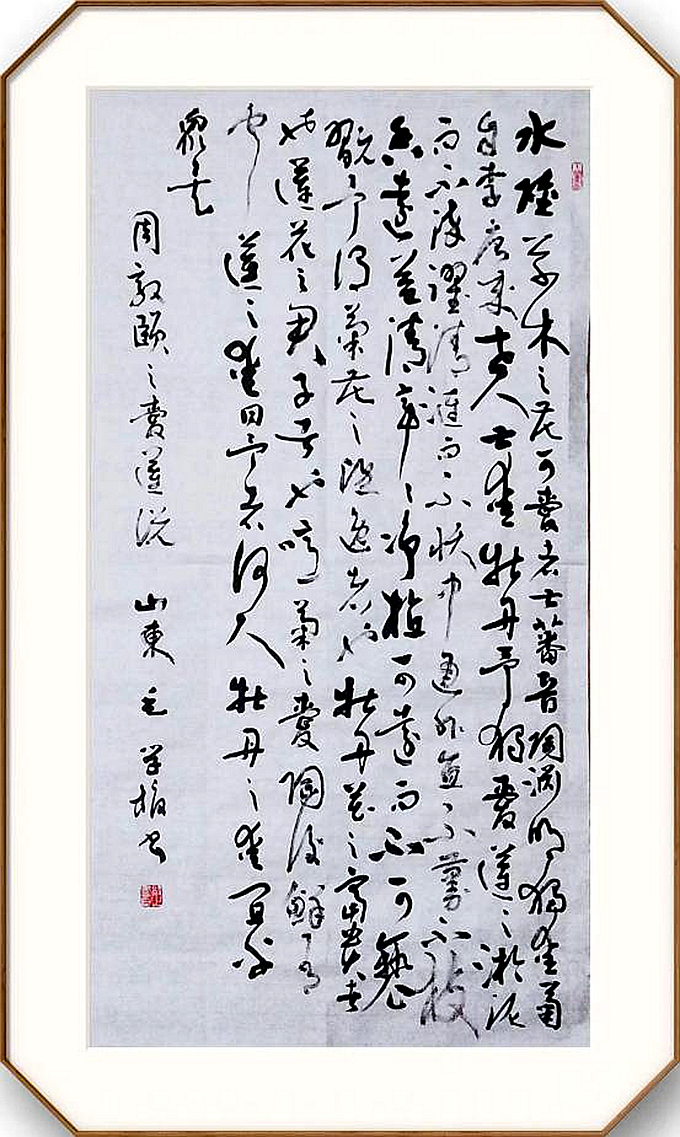 水陸草木之花可愛者甚蕃晉陶淵明獨愛菊
自李唐來世人甚愛牡丹予獨愛蓮之淤泥
而不染濯清漣而不妖中通外直不蔓不枝
香遠益清亭亭淨植可遠而不可褻
翫予謂菊花之隱逸者也牡丹花之富貴者
也蓮花之君子者也噫菊之愛陶後鮮有
聞蓮之愛同予者何人牡丹之愛宜乎
眾矣
周敦頤之愛蓮說 山東毛學振書